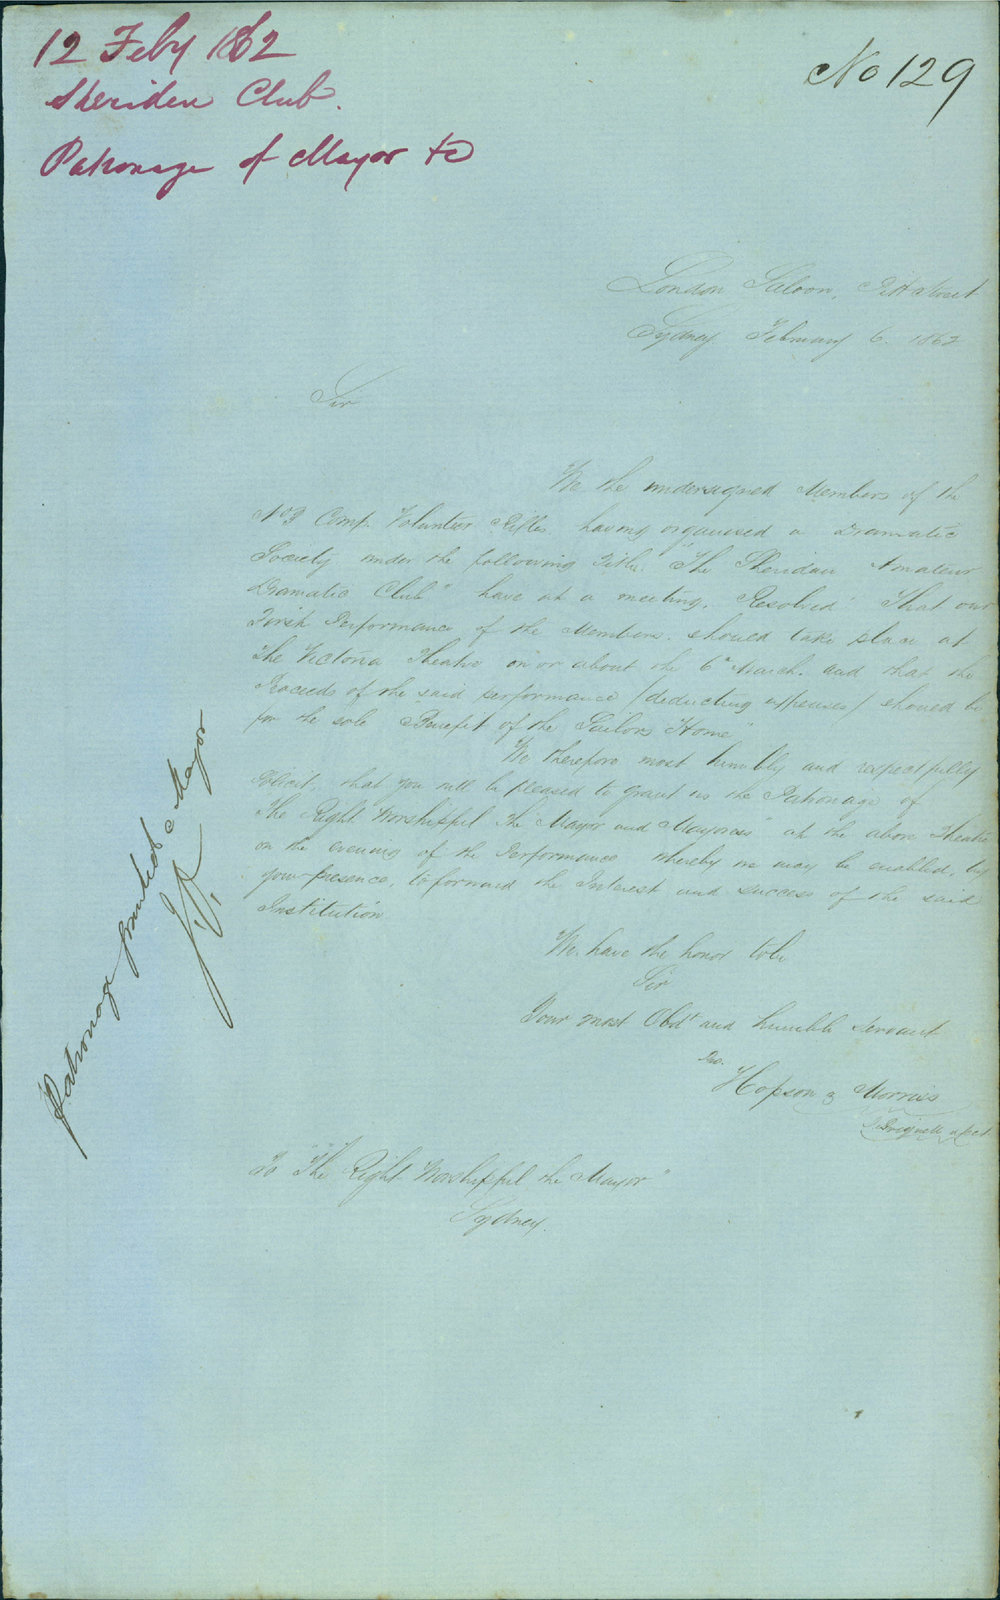 12 Feby 1862
Sheridan Club.
Patronage of Mayor to
No 129
London Saloon, Pitt Street
Sydney February 6. 1862
Sir
We the undersigned Members of the
No 3 Comp. Volunteer Rifles having organised a Dramatic
Society under the following Title. "The Sheridan Amateur
Dramatic Club" have at a meeting. Resolved. That our
First Performance of the Members. should take place at
The Victoria Theatre on or about the 6th March. and that the
Proceeds of the said performance /deducting expenses/ should be
for the sole Benefit of the "Sailors Home"
We therefore most humbly and respectfully
Solicit, that you will be pleased to grant us the Patronage of
The Right Worshipful the "Mayor and Mayoress" at the above Theatre
on the evening of the Performance thereby we may be enabled, by
your presence, to forward the Interest and success of the said
Institution
We have the honor to be
Sir
Your most Obdt and humble Servant
Hopson & Morriss
To "The Right Worshipful the Mayor"
Sydney.
Patronage granted Mayor